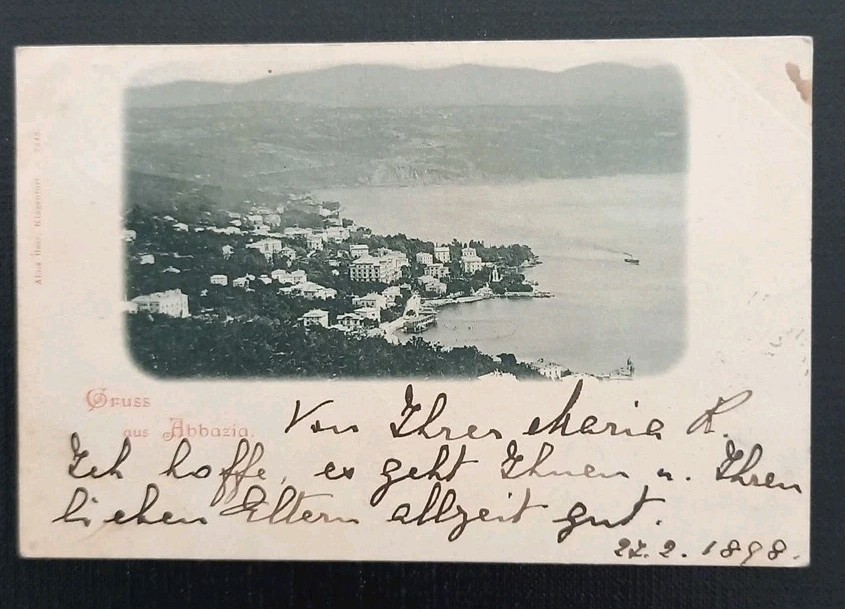 Gruss
aus Abbazia.
Von Ihrer Maria R.
Ich hoffe, es geht Ihnen u. Ihren
lieben Eltern allzeit gut.
27.2.1898.
Alois Beer, Klagenfurt.